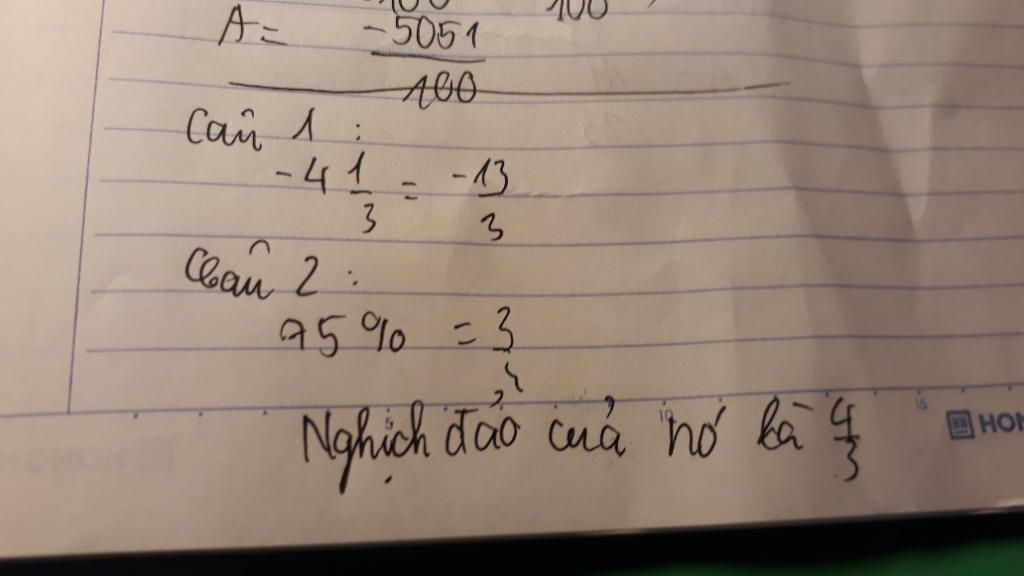 100 100
A = -5051
100
Câu 1 :
-4 1/3 = -13/3
Câu 2 :
75% = 3/4
Nghịch đảo của nó là 4/3
5 10 15
HON